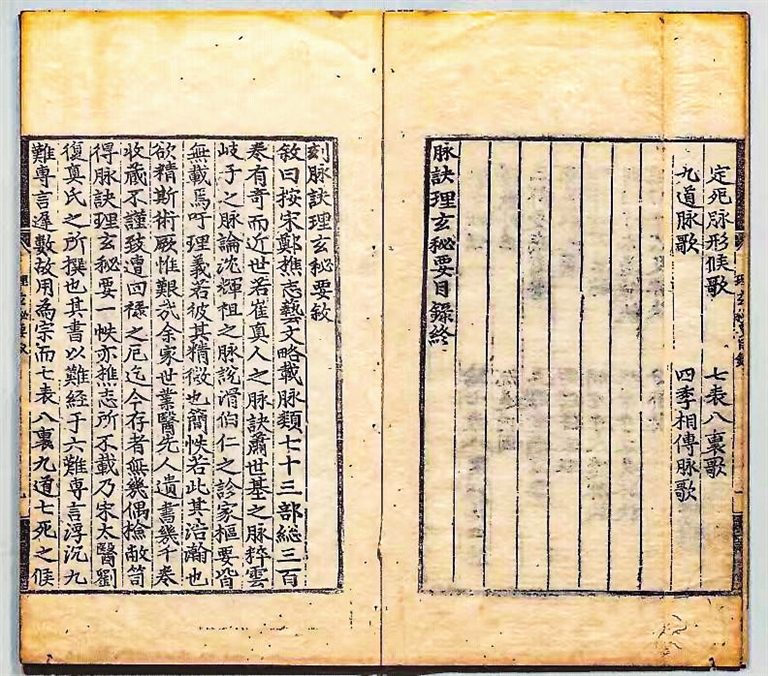 定死脉形候歌 七表八裏歌
九道脉歌 四季相傳脉歌
脉訣理玄秘要目錄終
刻脉訣理玄秘要敘
敘曰按宋鄭樵志藝文略載脉類七十三部総三百
卷有奇而近世若崔真人之脉訣蕭世基之脉粹雲
岐子之脉論沈輝祖之脉說滑伯仁之診家樞要皆
無載焉吁理義若彼其精微也簡帙若此其浩瀚也
欲精斯術厥惟艱哉余家世業醫先人遺書幾千卷
收藏不謹致遭回祿之厄迄今存者無幾偶檢敝笥
得脉訣理玄秘要一帙亦樵志所不載乃宋太醫劉
復真氏之所撰也其書以難經于六難專言浮沉九
難專言遲數故用為宗而七表八裏九道七死之候